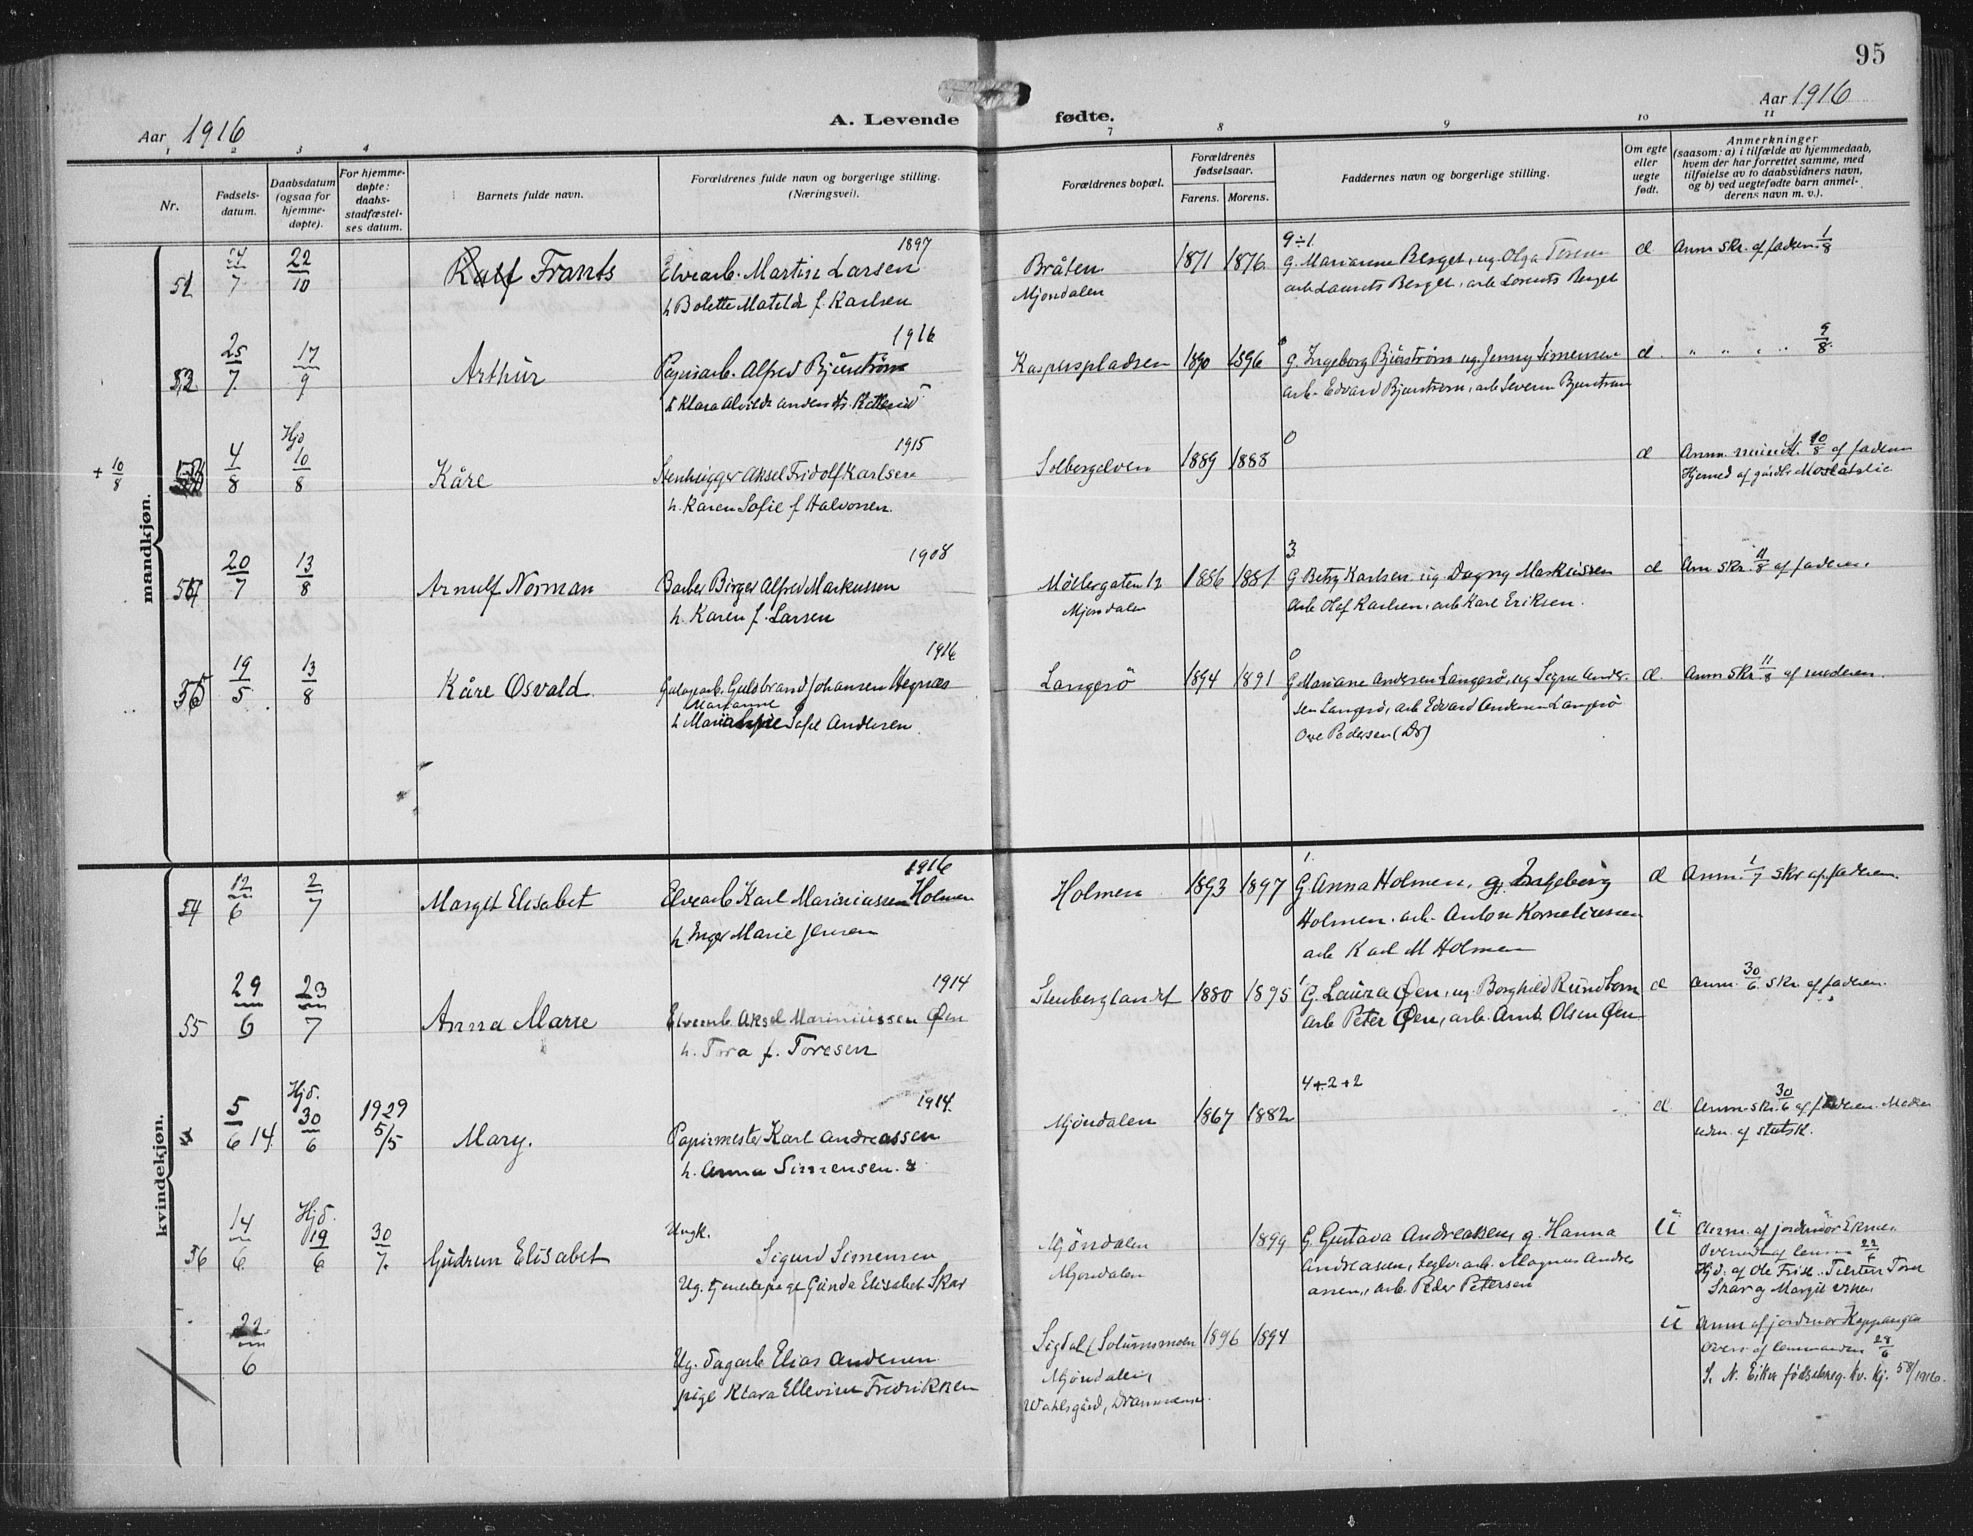 95
Aar 1916
A. Levende fødte.
Aar 1916
1 2 3 4 7 8 9 10 11
Nr.
Fødsels-
datum.
Daabsdatum
(ogsaa for
hjemme-
døpte).
For hjemme-
døpte:
daabs-
stadfæstel-
ses datum.
Barnets fulde navn.
Forældrenes fulde navn og borgerlige stilling.
(Næringsvei).
Forældrenes bopæl.
Forældrenes
fødselsaar.
Farens. Morens.
Faddernes navn og borgerlige stilling.
Om egte
eller
uegte
født.
Anmerkninger
(saasom: a) i tilfælde av hjemmedaab,
hvem der har forrettet samme, med
tilføielse av to daabsvidners navn,
og b) ved uegtefødte barn anmel-
derens navn m. v.).
mandkjøn.
51 24/7 22/10 Ralf Frants
1897
Elvearb. Martin Larsen
h Bolette Matilde f. Karlsen
Bråten
Mjøndalen
1871 1876
9÷1
g. Marianne Berget, ug. Olga
arb Laurits Berget, arb Lorents Berget
d Anm skr. af faderen 1/8
52 25/7 17/9 Arthur
1916
Papirarb. Alfred Bjurstrøm
h Klara Alvilde
Kasperspladsen 1890 1896
0
G. Ingeborg Bjurstrøm ug. Jenny Simensen
arb. Edvard Bjurstrøm, arb Severin Bjurstrøm
d " " " " 9/8
+ 10/8
4/8 Hjd 10/8 Kåre
1915
Stenhugger Aksel Fridolf Karlsen
h. Karen Sofie f Halvorsen.
Solbergelven 1889 1888
0
d Anm. mundtl. 10/8 af faderen
Hjemmed af
20/7 13/8 Arnulf Norman
1908
Barber Birger Alfred Markussen
h. Karen f. Larsen
Møllergaten 12
Mjøndalen
1886 1881
3
G Betzy Karlsen ug. Dagny Markussen
arb Olaf Karlsen, arb Karl Eriksen.
d Anm skr. 11/8 af faderen.
19/5 13/8 Kåre Osvald
1916
Gulbrand Johansen Hegnæs
Marianne
h Sofie Andersen.
Langesø 1894 1891
0
G Mariane Andersen Langesø, ug Signe Ander-
sen Langesø, arb Edvard Andersen Langesø
Ove Pedersen (Ds)
d Anm skr 11/8 af moderen.
kvindekjøn.
54 12/6 2/7 Margit Elisabet
1916
Elvearb Karl Mariniussen Holmen
h. Inger Marie Jensen
Holmen 1893 1897
1
G. Anna Holmen, g. Ingeborg
Holmen. arb. Anton Korneliussen
arb Karl M Holmen
d Anm. 1/7 skr af faderen.
55 29/6 23/7 Anna Marie
1914
Elvearb. Aksel Mariniussen Øen
h. Tora f. Toresen
Stenberglandet 1880 1895
1
G. Laura Øen, ug. Borghild Rundhom
arb Peter Øen, arb. Arnt Olsen Øen
d Anm. 30/6 skr af faderen.
5/6 14 Hjd. 30/6 1929 5/5 Mary.
1914.
Papirmester Karl Andreassen
h. Anna Simensen.
Mjøndalen 1867 1882
4+2+2
d Anm. skr. 30/6 af faderen. Meden
uden. af statsk.
56 14/6 Hjd. 19/6 30/7. Gudrun Elisabet
Ungk.
Sigurd Simensen
Ug. tjenestepige Gunda Elisabet Skar
Mjøndalen
Mjøndalen
1899
G. Gustava Andreassen, g. Hanna
Andreassen, arb. Magnus Andre
assen, arb. Peder Petersen
ü Anm. af jordmor
22/6
Hjd. af Ole
Skar og Margit
22/6
Ug. dagarb Elias Andersen
pige Klara Ellevine Fredriksen
Sigdal (Solumsmoen
Mjøndalen,
Wahlsgård, Drammen
1896 1894
ü Anm af jordmor
28/6
S. N. Eiker fødselsreg. kv. kj. 58/1916.